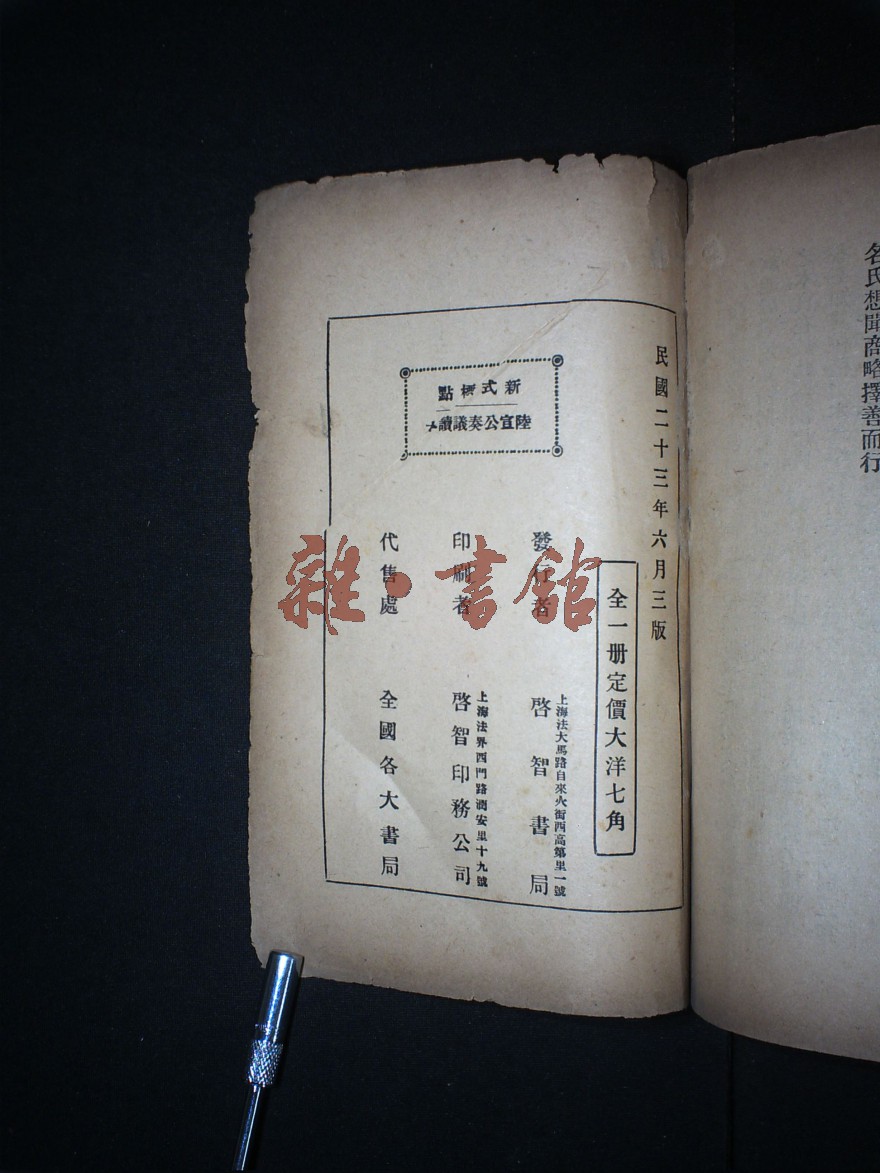 名氏想聞商略擇善而行
民國二十三年六月三版
全一册定價大洋七角
新式標點
陸宣公奏議讀本
發行者
上海法大馬路自來火街西高第里一號
啓智書局
印刷者
上海法界西門路潤安里十九號
啓智印務公司
代售處
全國各大書局
雜·書館